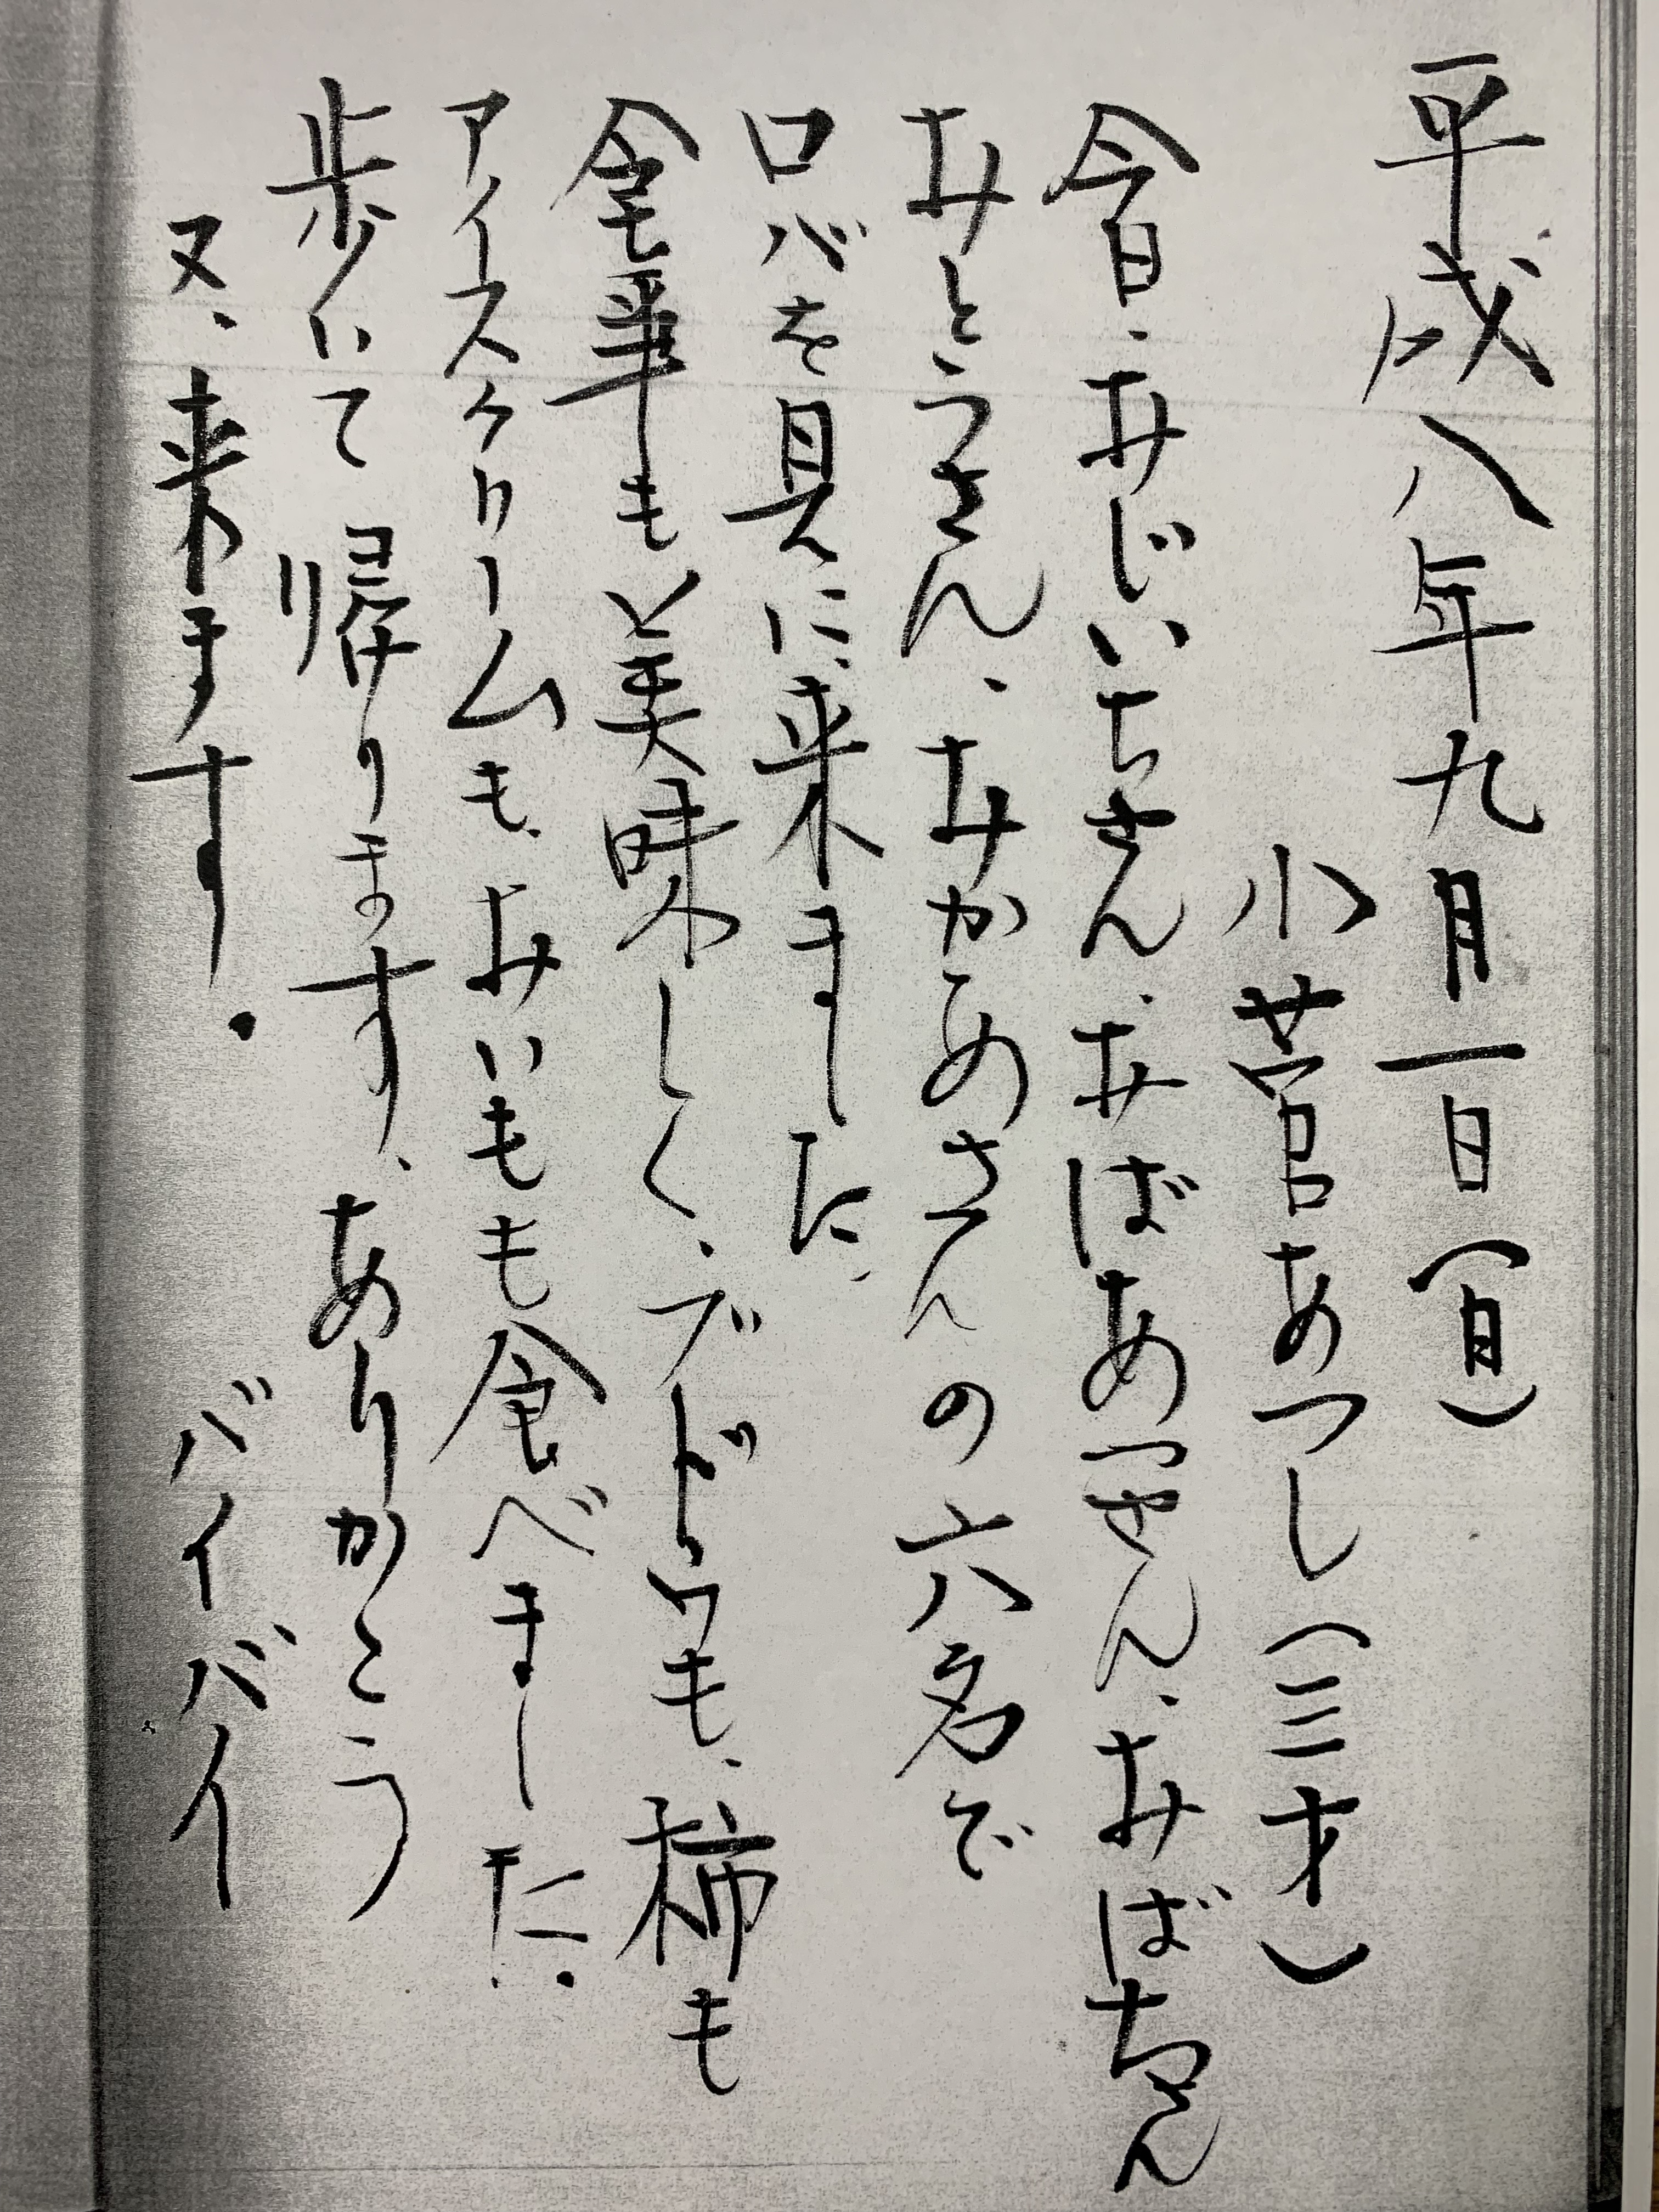 平成八年九月一日(日)
小菅あつし(三才)
今日、おじいちゃん、おばあちゃん、おばちゃん
おとうさん、おかあさんの六名で
ロバを見に来ました。
食事も美味しく、ブドウも、柿も
アイスクリームも、おいもも食べました。
歩いて帰ります、ありがとう
又、来ます。バイバイ